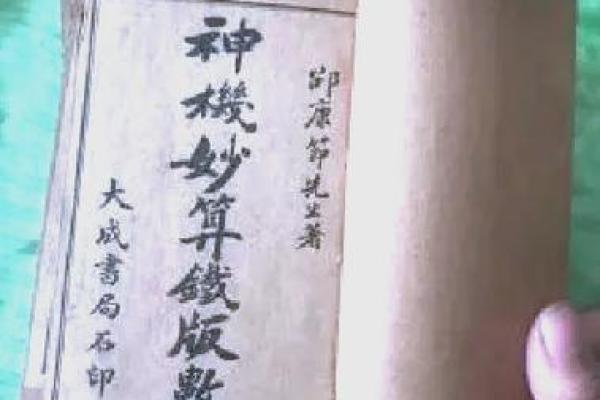 邵康節先生著
神機妙算鐵版數
大成書局石印